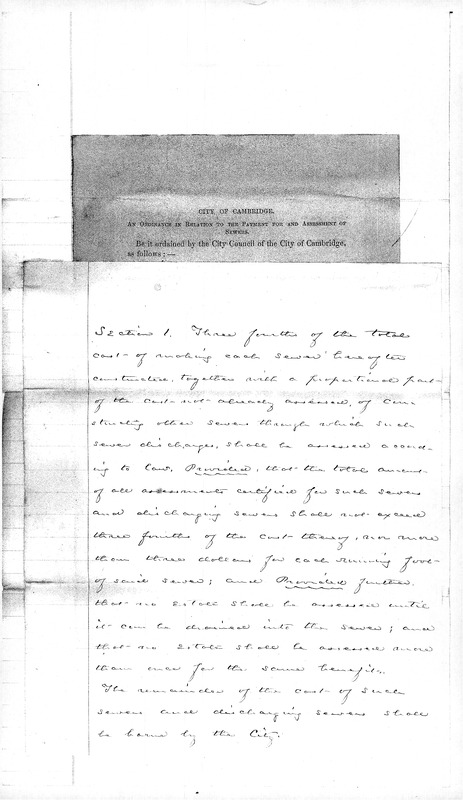 CITY OF CAMBRIDGE.
AN ORDINANCE IN RELATION TO THE PAYMENT FOR AND ASSESSMENT OF
SEWERS.
Be it ordained by the City Council of the City of Cambridge,
as follows:—
Section 1. Three fourths of the total
cost of making each sewer hereafter
constructed, together with a proportional part
of the cost not already assessed, of con-
structing other sewers through which such
sewer discharges, shall be assessed accord-
ing to law, Provided, that the total amount
of all assessments certified for such sewers
and discharging sewers shall not exceed
three fourths of the cost thereof, nor more
than three dollars for each running foot
of said sewer; and Provided further
that no estate shall be assessed until
it can be drained into the sewer; and
that no estate shall be assessed more
than once for the same benefit.
The remainder of the cost of such
sewers and discharging sewers shall
be borne by the City.